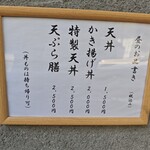 昼のお品書き
（税込み）
天丼 1,500円
かき揚げ丼 2,000円
特製天丼 2,500円
天ぷら膳 2,500円
（丼ものは持ち帰り可）